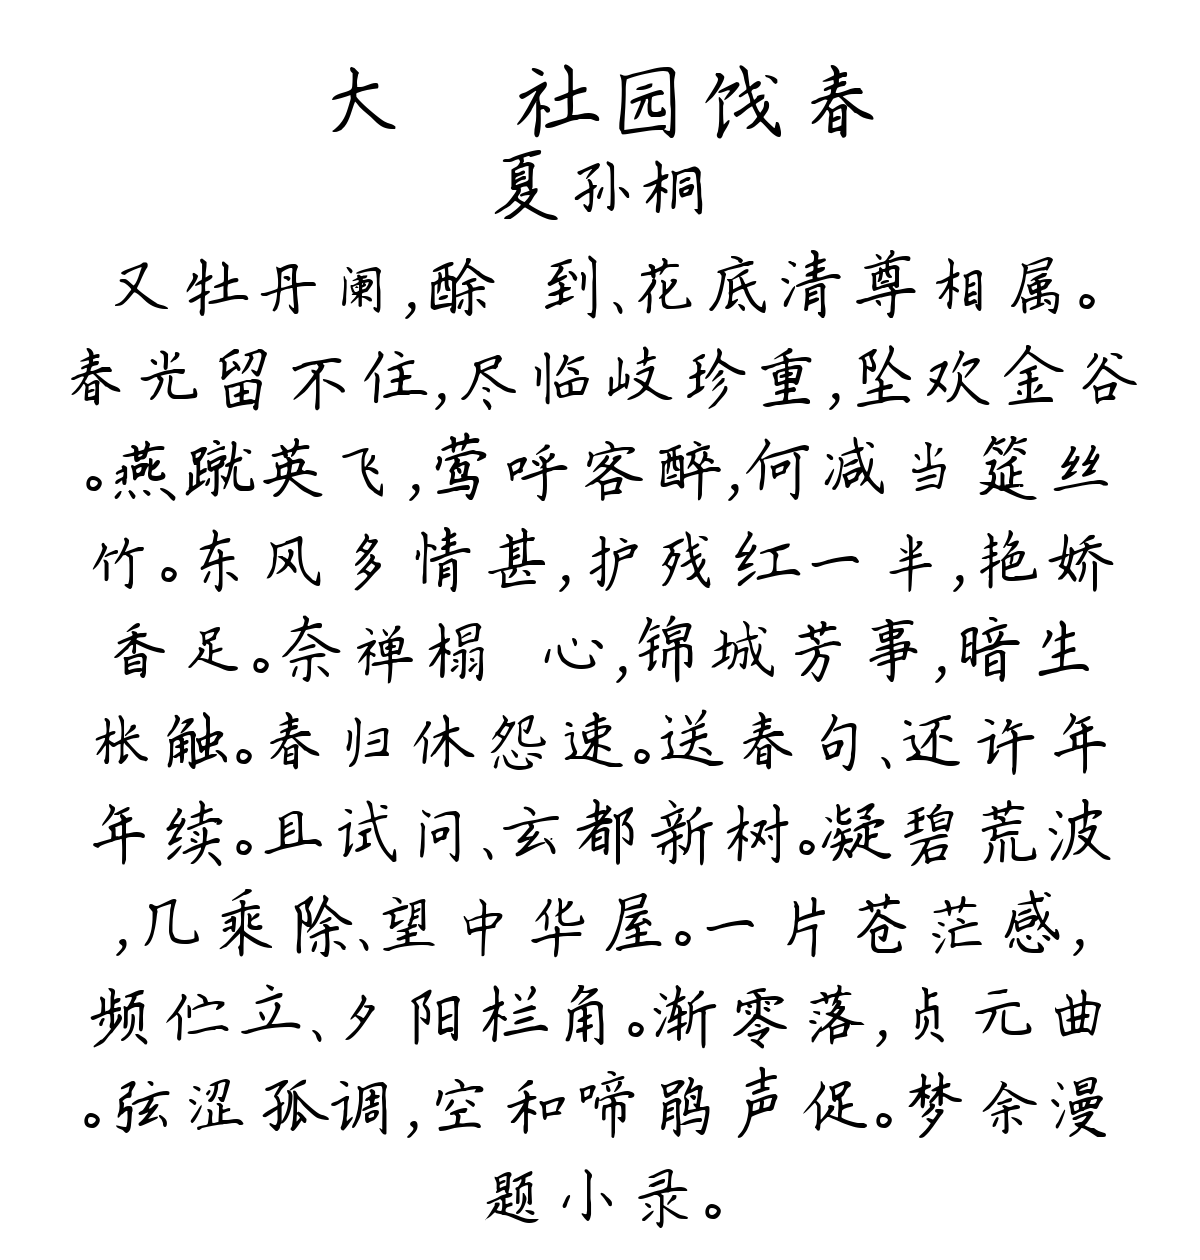 大 社园饯春
夏孙桐
又牡丹阑,酴 到、花底清尊相属。
春光留不住,尽临歧珍重,坠欢金谷
。燕蹴英飞,莺呼客醉,何减当筵丝
竹。东风多情甚,护残红一半,艳娇
香足。奈禅榻 心,锦城芳事,暗生
枨触。春归休怨速。送春句、还许年
年续。且试问、玄都新树。凝碧荒波
,几乘除、望中华屋。一片苍茫感,
频伫立、夕阳栏角。渐零落,贞元曲
。弦涩孤调,空和啼鹃声促。梦余漫
题小录。